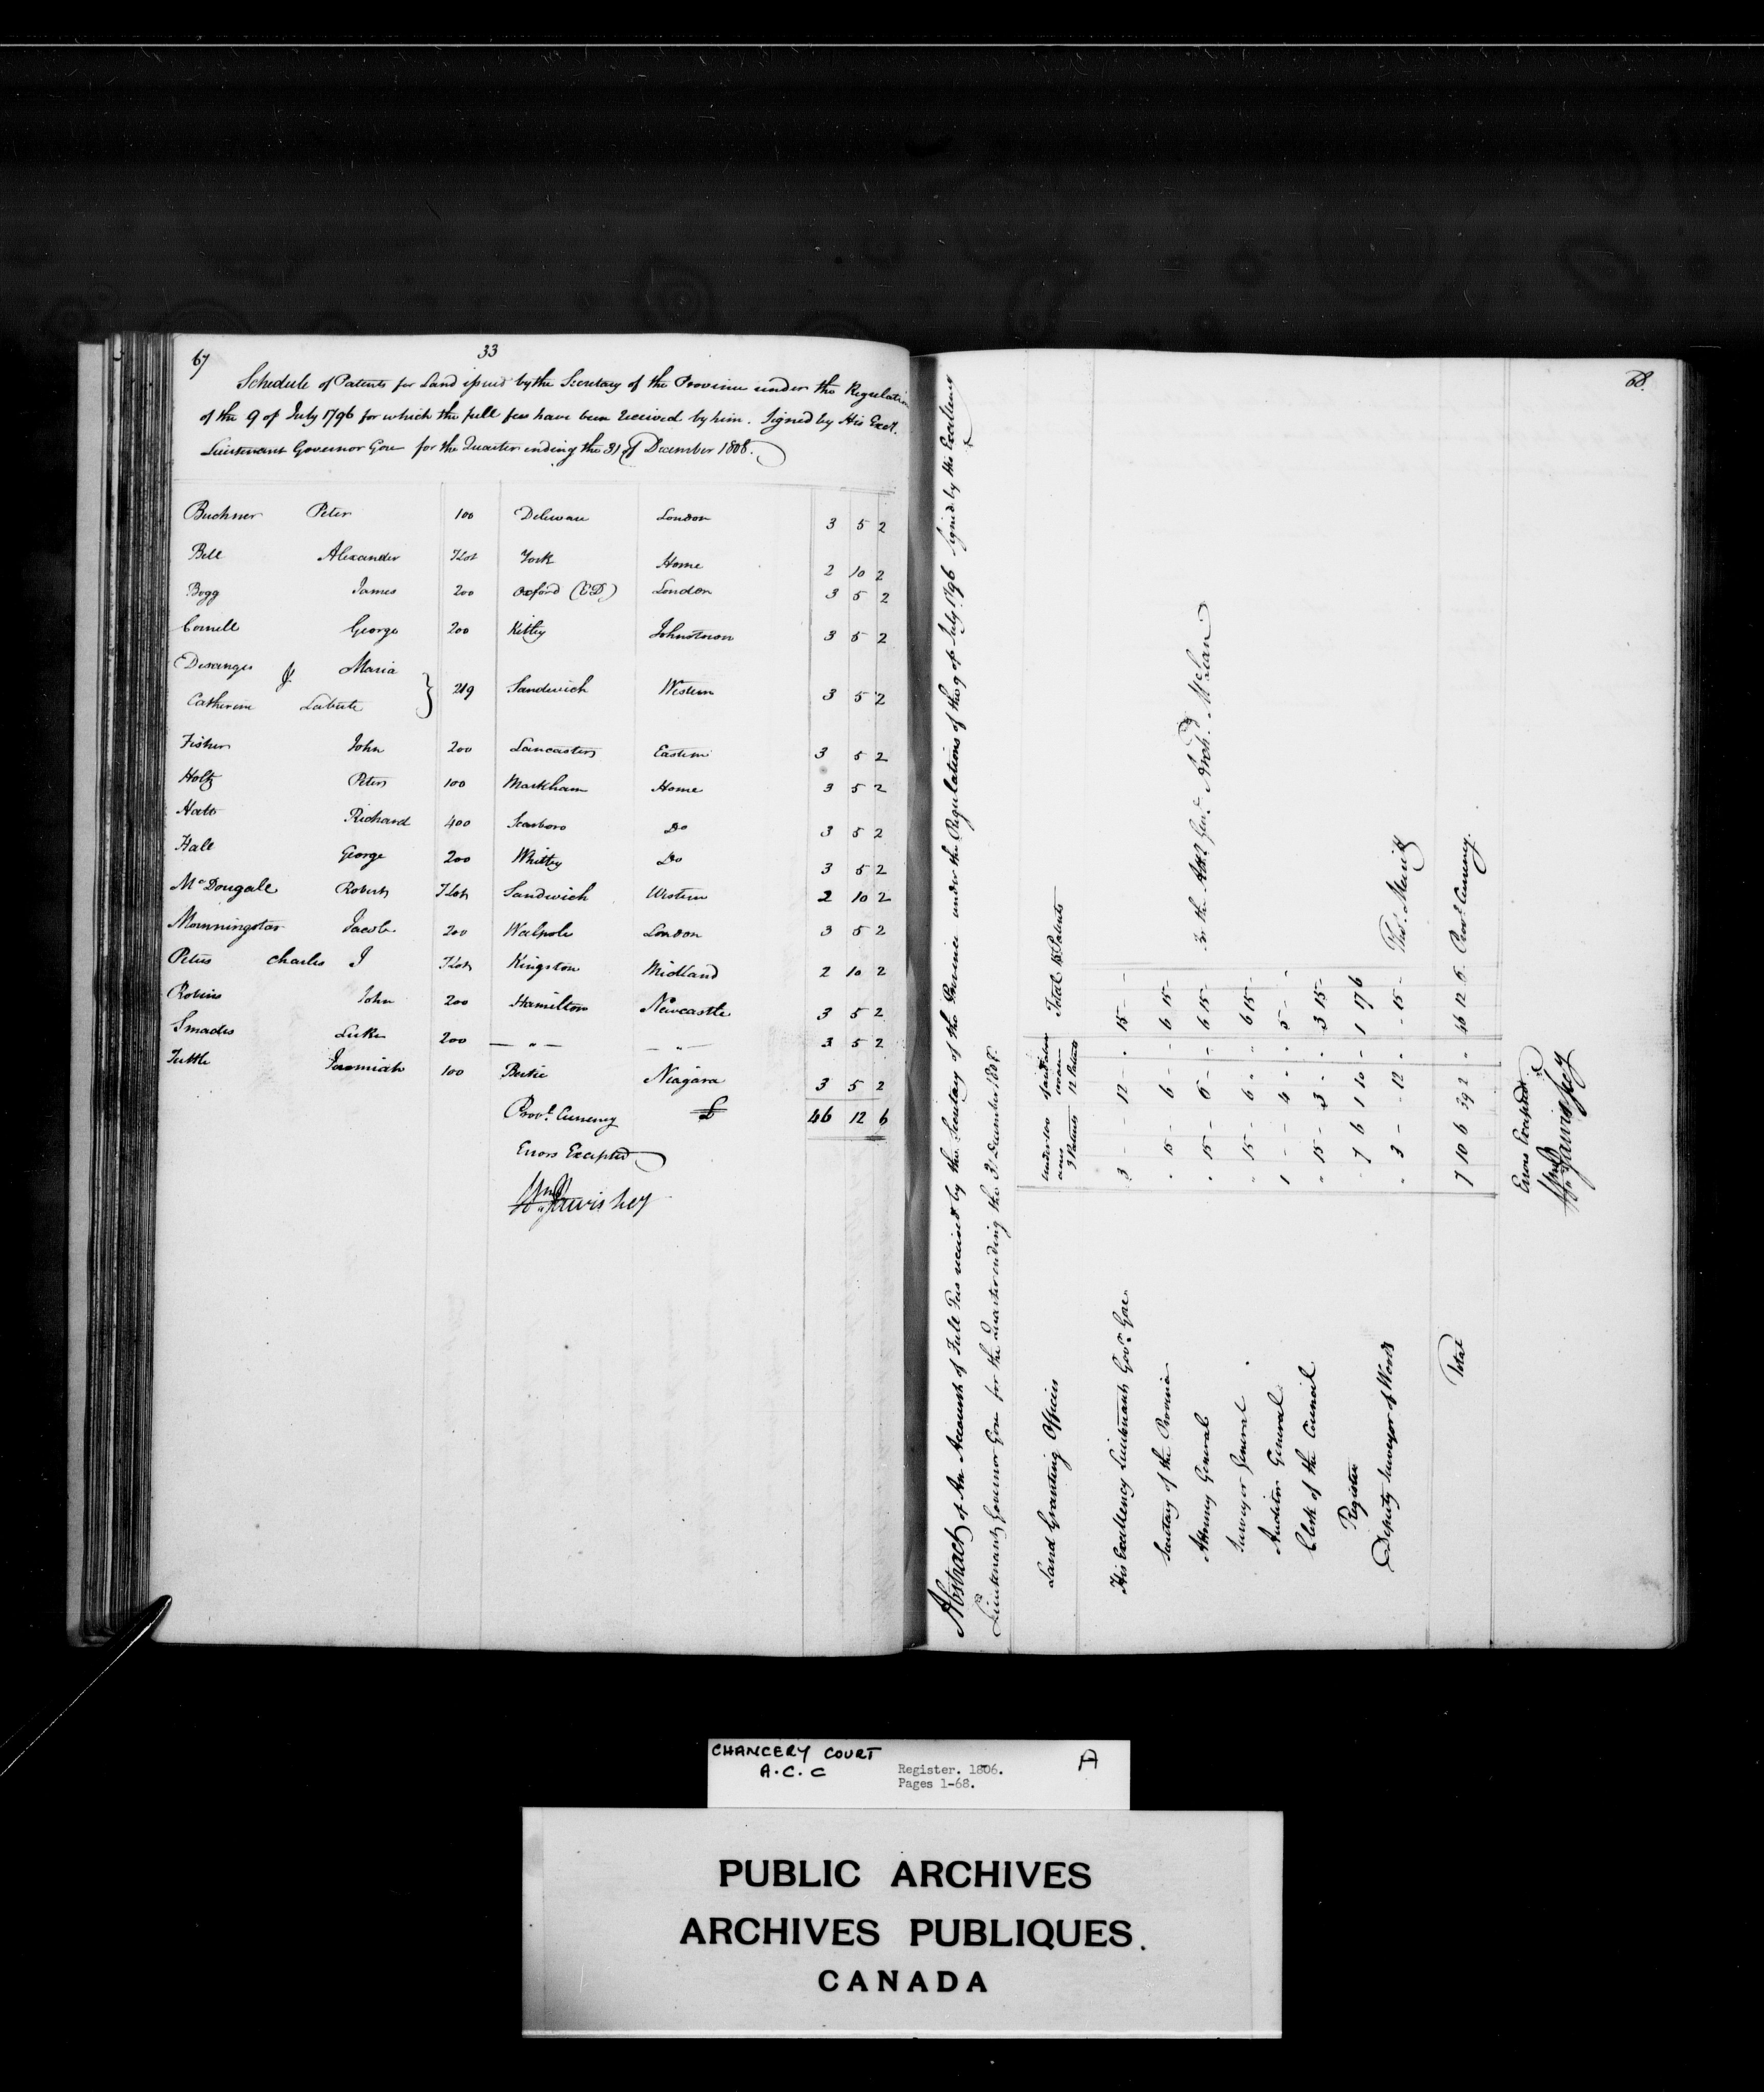 67 33
Schedule of Patents for Land issued by the Secretary of the Province under the Regulation
of the 9 of July 1796 for which the full fees have been received by him. Signed by His Excy.
Lieutenant Governor Gore for the Quarter ending the 31 of December 1808.
Buchner Peter 100 Deleware London 3 5 2
Bell Alexander T Lot York Home 2 10 2
Bogg James 200 Oxford London 3 5 2
Cornell George 200 Kitley Johnstown 3 5 2
& Maria
Catherine Labute } 219 Sandwich Western 3 5 2
Fisher John 200 Lancaster Eastern 3 5 2
Holtz Peter 100 Markham Home 3 5 2
Hatt Richard 400 Scarboro Do 3 5 2
Hall George 200 Whitby Do 3 5 2
McDougale Robert T Lot Sandwich Western 2 10 2
Morningstar Jacob 200 Walpole London 3 5 2
Peters Charles J T Lot Kingston Midland 2 10 2
Robins John 200 Hamilton Newcastle 3 5 2
Smades Luke 200 — " — — " — 3 5 2
Tuttle Jeremiah 100 Bertie Niagara 3 5 2
Provl. Currency £ 46 12 6
Errors Excepted
Wm Jarvis Secy
68.
Abstract of An Account of Full Fees received by the Secretary of the Province under the Regulations of the 9 of July 1796 Signed by His Excellency
Lieutenant Governor Gore for the Quarter ending the 31 December 1808.
Land Granting Officers under 100 acres 3 Patents 12 Patents Total 15 Patents
His Excellency Lieutenant Govr. Gore 3 - - 12 - . 15 - -
Secretary of the Province . 15 - 6 - - 6 15 -
Attorney General . 15 - 6 - - 6 15 - Archd. McLean
Surveyor General " 15 - 6 " " 6 15 -
Auditor General 1 - - 4 " " 5 - -
Clerk of the Council " 15 - 3 " " 3 15 -
Register . 7 6 1 10 - 1 17 6
Deputy Surveyor of Woods " 3 - - 12 " - 15 - Thos. Merritt
Total 7 10 6 39 2 " 46 12 6 Provl. Currency.
Errors Excepted
Wm Jarvis Secy
CHANCERY COURT
A.C.C
Register. 1806.
Pages 1-68.
A
PUBLIC ARCHIVES
ARCHIVES PUBLIQUES.
CANADA